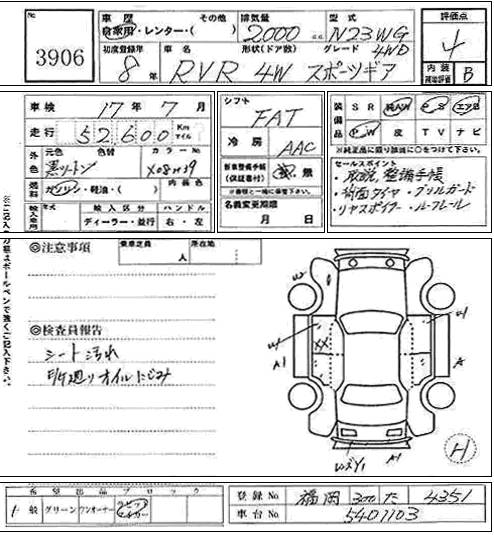 No
3906
車歴 その他 排気量 型式 評価点
自家用・レンター・( ) 2,000 cc N23WG 4
初度登録年 車名 形状(ドア数) グレード 4WD
8年 RVR 4W スポーツギア 内装 B
車検 17年 7月
走行 52,600 Km マイル
外色 元色 色替 カラーNo
黒ツートン X08H39
燃料 ガソリン・軽油・( ) 内装色
輸入区分 ハンドル
ディーラー・並行 右・左
シフト
FAT
冷房 AAC
新車整備手帳(保証書付) 有 無
名義変更期限
月 日
装備品 SR 純AW PS エアB
PW 皮 TV ナビ
※純正品に限り該当に○をつけて下さい。
セールスポイント
・取説、整備手帳
・背面タイヤ ・グリルガード
・リヤスポイラー ・ルーフレール
◎注意事項 乗車定員 人 所在地
万年ボールペンで強くご記入下さい。
◎検査員報告
シート汚れ
下廻りオイルにじみ
A1
A
レンズY1 A1
H
希望出品ブロック
一般 グリーン ワンオーナー
登録No 福岡 300 た 4351
車台No 5401103